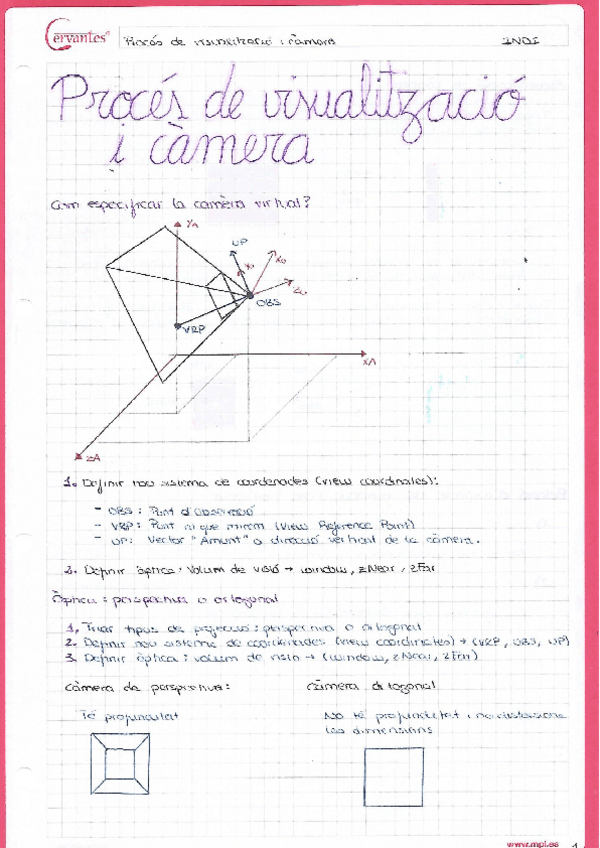 Cervantes® Procés de visualització i càmera INDI
Procés de visualització
i càmera
Com especificar la càmera virtual?
YA
UP
OBS
VRP
XA
ZA
1. Definir nou sistema de coordenades (view coordinates):
- OBS: Punt d'observació
- VRP: Punt al que mirem (View Reference Point)
- UP: Vector "Amunt" o direcció vertical de la càmera.
2. Definir òptica: Volum de visió → window, zNear, zFar
Òptica: perspectiva o ortogonal
1. Triar tipus de projecció: perspectiva o ortogonal
2. Definir nou sistema de coordenades (view coordinates) → (VRP, OBS, UP)
3. Definir òptica: volum de visio → (window, zNear, zFar)
Càmera de perspectiva: Càmera ortogonal
Té profunditat No té profunditat i no distorsiona
les dimensions
www.mpl.es 1